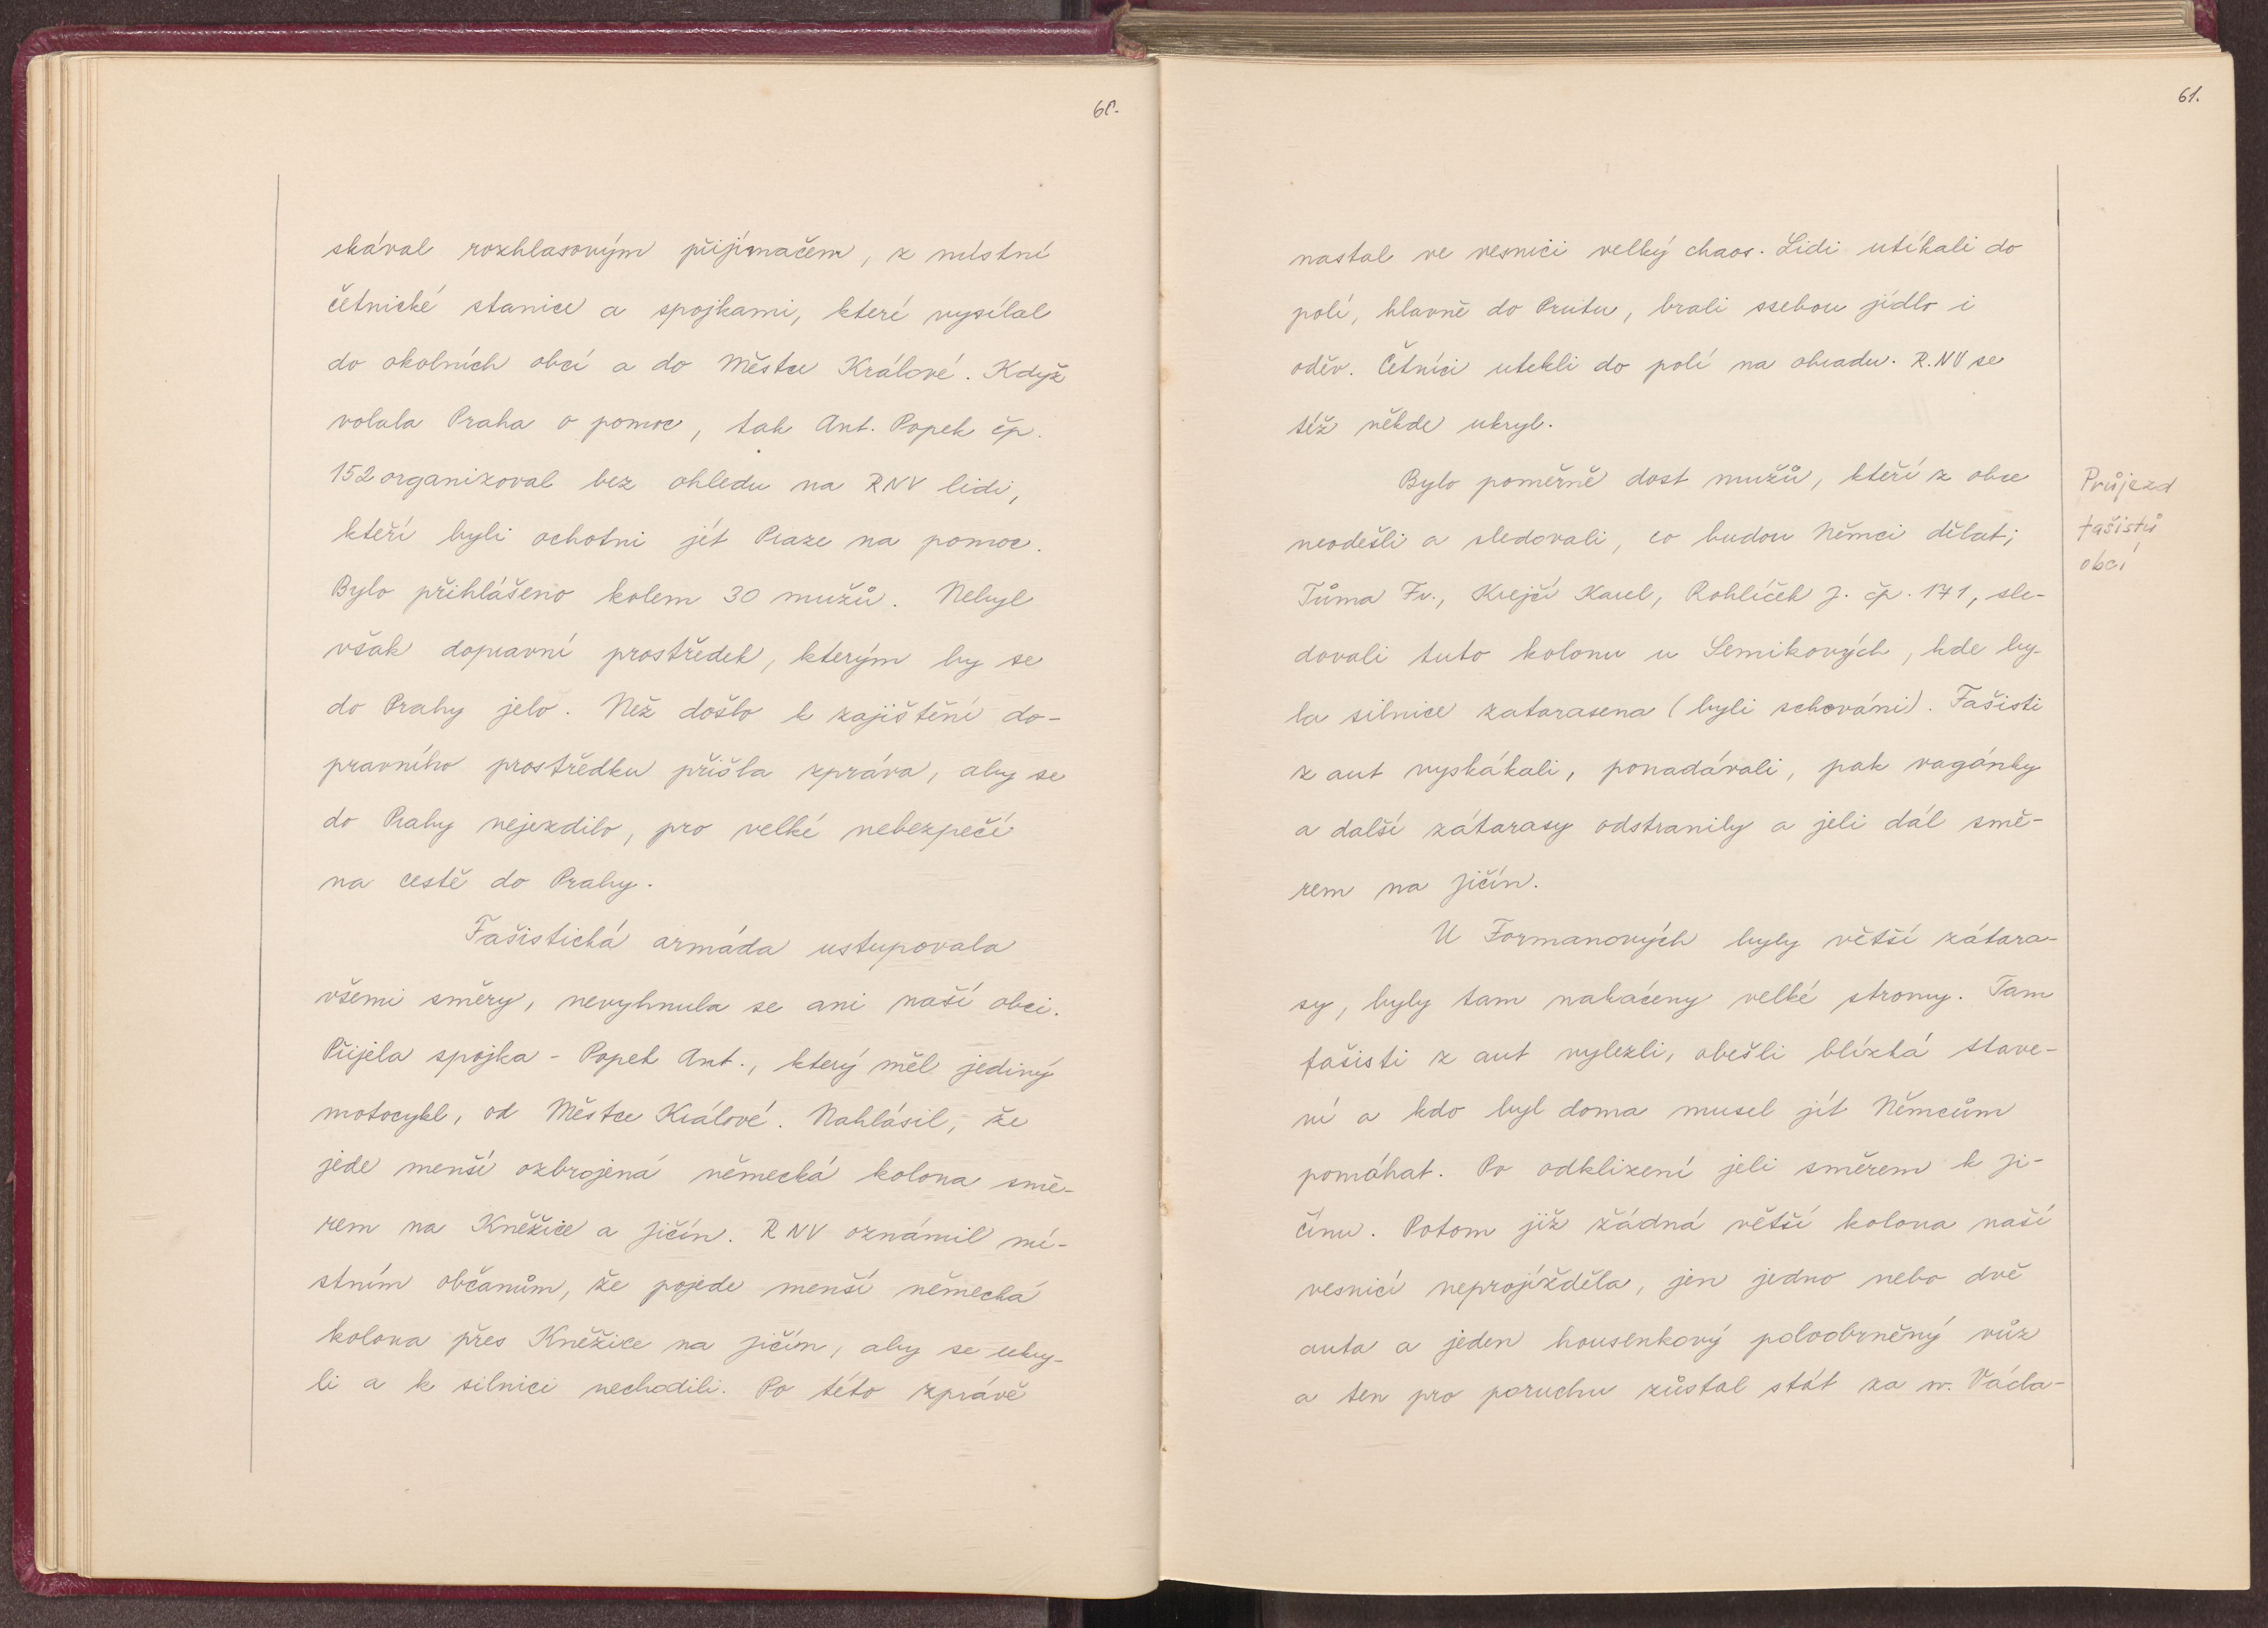 60.
skával rozhlasovým přijímačem, z místní
četnické stanice a spojkami, které vysílal
do okolních obcí a do Městce Králové. Když
volala Praha o pomoc, tak Ant. Popek čp.
152 organizoval bez ohledu na RNV lidi,
kteří byli ochotni jét Praze na pomoc.
Bylo přihlášeno kolem 30 mužů. Nebyl
však dopravní prostředek, kterým by se
do Prahy jelo. Než došlo k zajištění do-
pravního prostředku přišla zpráva, aby se
do Prahy nejezdilo, pro velké nebezpečí
na cestě do Prahy.
Fašistická armáda ustupovala
všemi směry, nevyhnula se ani naší obci.
Přijela spojka - Popek Ant., který měl jediný
motocykl, od Městce Králové. Nahlásil, že
jede menší ozbrojená německá kolona smě-
rem na Kněžice a Jičín. RNV oznámil mí-
stním občanům, že pojede menší německá
kolona přes Kněžice na Jičín, aby se ukry-
li a k silnici nechodili. Po této zprávě
61.
nastal ve vesnici velký chaos. Lidi utíkali do
polí, hlavně do Prutu, brali ssebou jídlo i
oděv. Četníci utekli do polí na ohradu. R.NV se
též někde ukryl.
Bylo poměrně dost mužů, kteří z obce
neodešli a sledovali, co budou Němci dělat;
Tůma Fr., Krejčí Karel, Rohlíček J. čp. 171, sle-
dovali tuto kolonu u Semikových, kde by-
la silnice zatarasena (byli schováni). Fašisti
z aut vyskákali, ponadávali, pak vagánky
a další zátarasy odstranily a jeli dál smě-
rem na Jičín.
U Formanových byly větší zátara-
sy, byly tam nakáceny velké stromy. Tam
fašisti z aut vylezli, obešli blízká stave-
ní a kdo byl doma musel jít Němcům
pomáhat. Po odklizení jeli směrem k Ji-
čínu. Potom již žádná větší kolona naší
vesnicí neprojížděla, jen jedno nebo dvě
auta a jeden housenkový poloobrněný vůz
a ten pro poruchu zůstal stát za sv. Václa-
Průjezd
fašistů
obcí